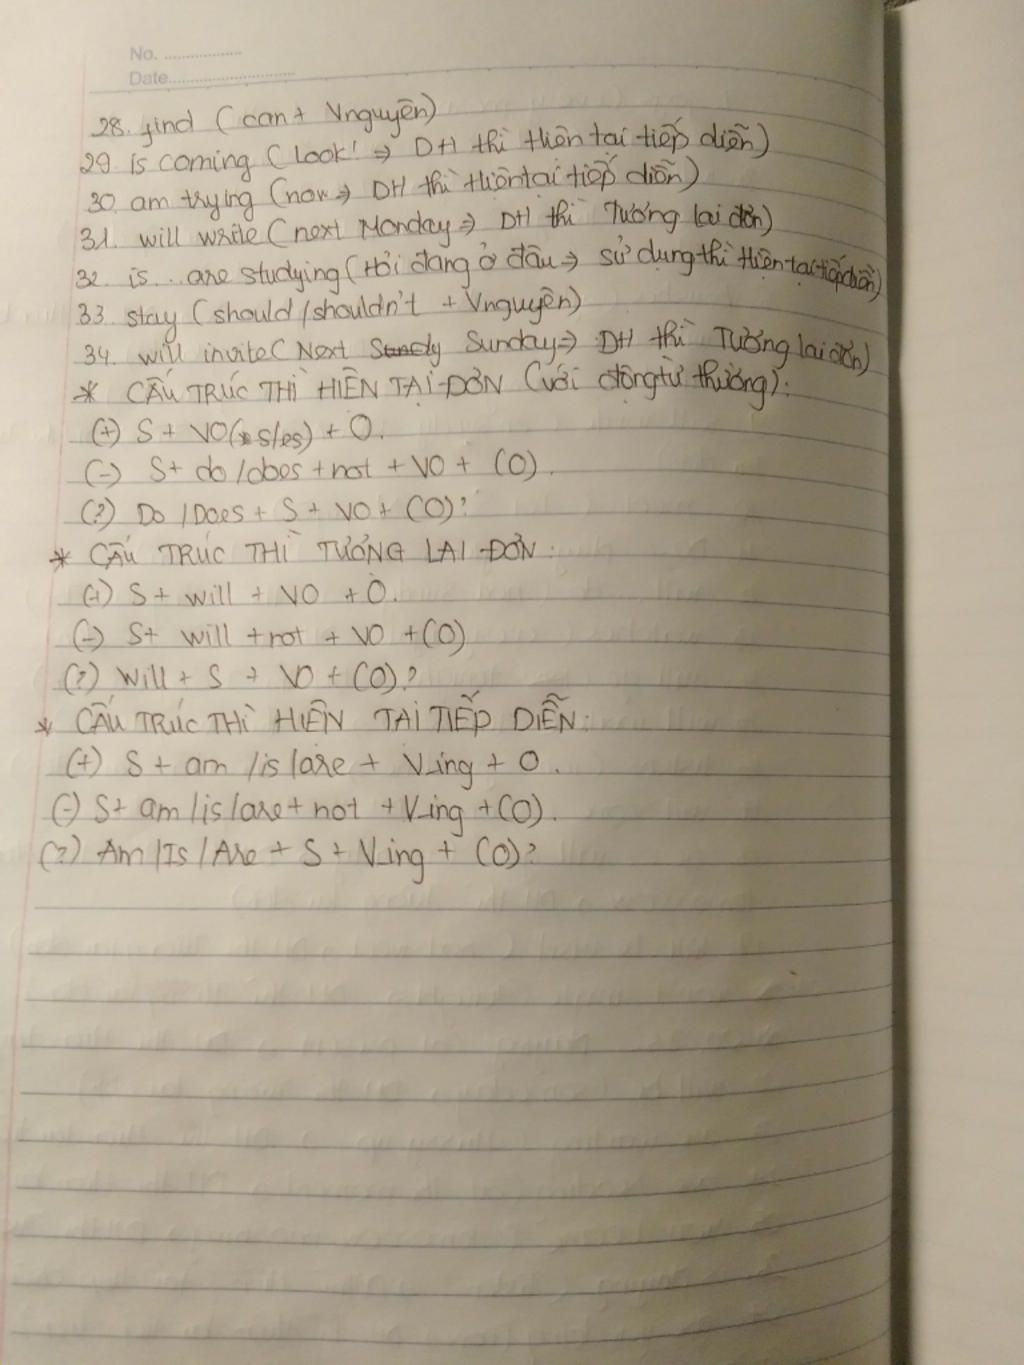 No. ..................
Date.............................
28. find (can + Vnguyên)
29. is coming (Look! => DH thì Hiện tại tiếp diễn)
30. am trying (now => DH thì Hiện tại tiếp diễn)
31. will write (next Monday => DH thì Tương lai đơn)
32. is...are studying (Hỏi đang ở đâu => sử dụng thì Hiện tại tiếp diễn)
33. stay (should/shouldn't + Vnguyên)
34. will invite (Next Sunday => DH thì Tương lai đơn)
* CẤU TRÚC THÌ HIỆN TẠI ĐƠN (với động từ thường):
(+) S + VO(s/es) + O.
(-) S + do/does + not + VO + (O).
(?) Do/Does + S + VO + (O)?
* CẤU TRÚC THÌ TƯƠNG LAI ĐƠN:
(+) S + will + VO + O.
(-) S + will + not + VO + (O)
(?) Will + S + VO + (O)?
* CẤU TRÚC THÌ HIỆN TẠI TIẾP DIỄN:
(+) S + am/is/are + V_ing + O.
(-) S + am/is/are + not + V_ing + (O).
(?) Am/Is/Are + S + V_ing + (O)?